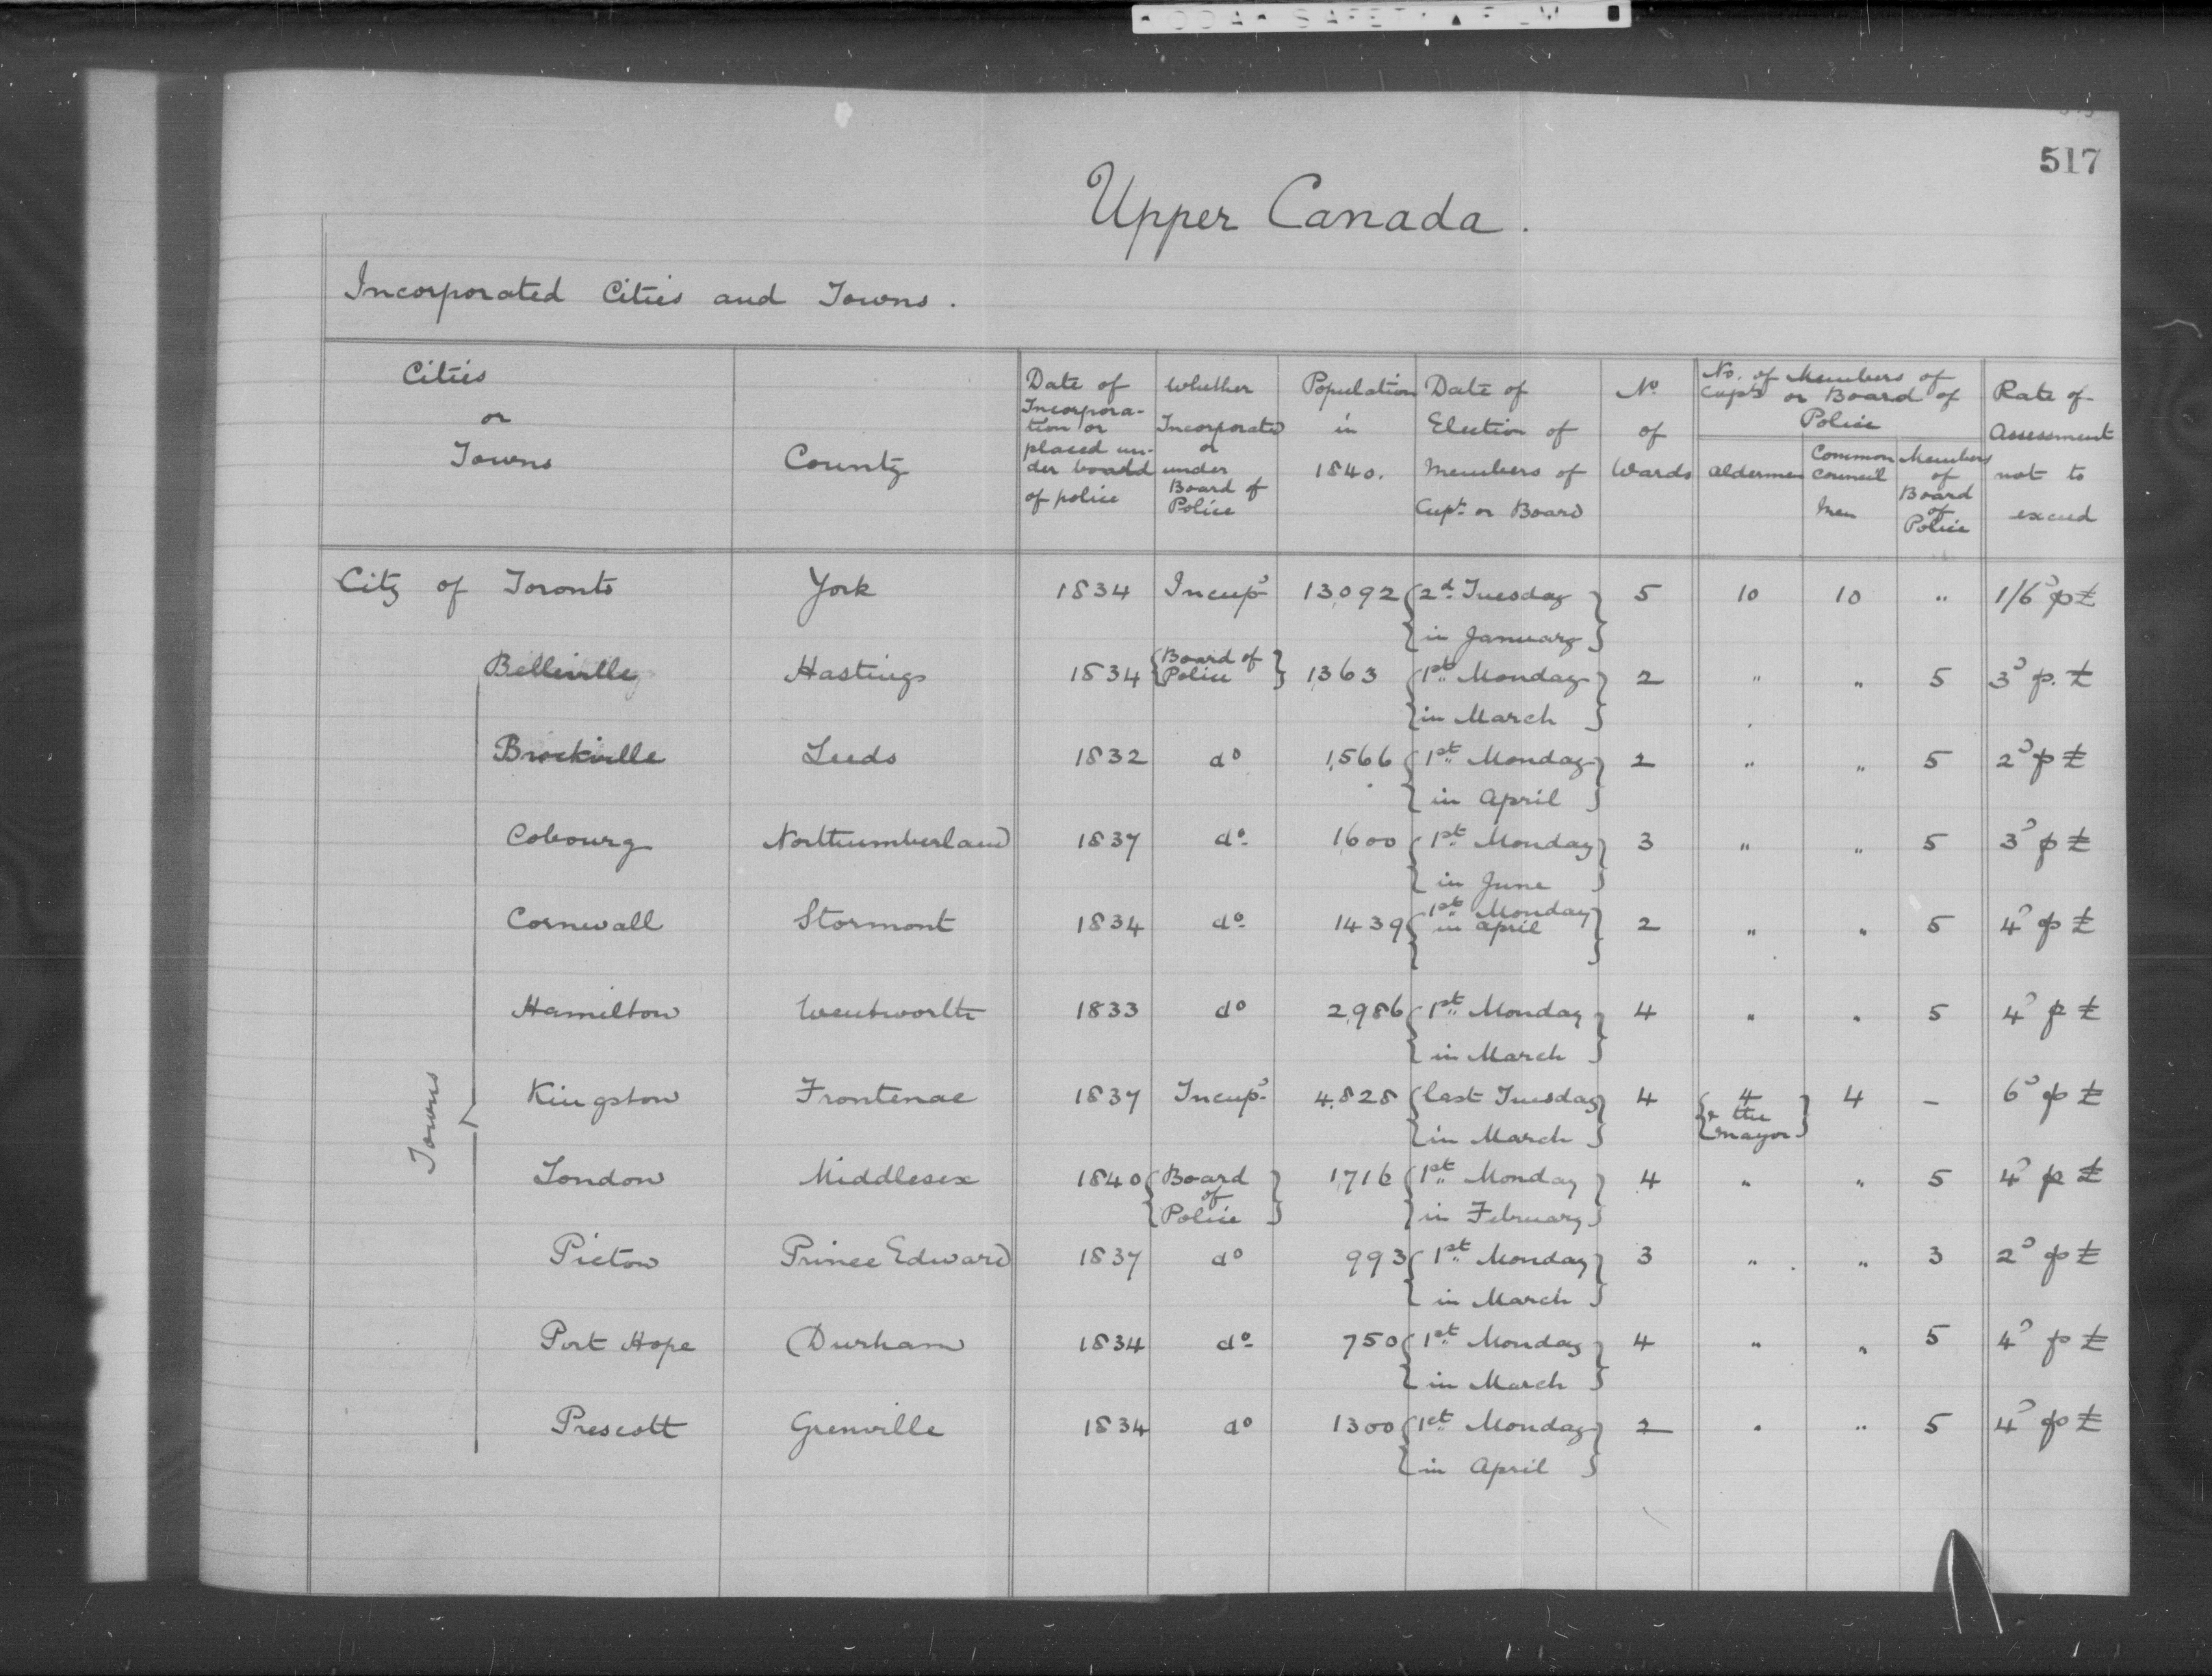 517
Upper Canada.
Incorporated Cities and Towns.
Cities or Towns
County
Date of Incorpora-tion or placed un-der board of police
Whether Incorporated or under Board of Police
Population in 1840.
Date of Election of Members of Cupn or Board
No of Wards
No. of Members of Cupn or Board of Police
Aldermen
Common Council Men
Members of Board of Police
Rate of Assessment not to exceed
City of Toronto York 1834 Incupd 13,092 { 2d Tuesday in January } 5 10 10 " 1/6d p £
Towns
Belleville Hastings 1834 { Board of Police } 1363 { 1st Monday in March } 2 " " 5 3d p. £
Brockville Leeds 1832 do 1,566 { 1st Monday in April } 2 " " 5 2d p £
Cobourg Northumberland 1837 do 1600 { 1st Monday in June } 3 " " 5 3d p £
Cornwall Stormont 1834 do 1439 { 1st Monday in April } 2 " " 5 4d p £
Hamilton Wentworth 1833 do 2,986 { 1st Monday in March } 4 " " 5 4d p £
Kingston Frontenac 1837 Incupd 4,828 { last Tuesday in March } 4 { 4 & the Mayor } 4 – 6d p £
London Middlesex 1840 { Board of Police } 1,716 { 1st Monday in February } 4 " " 5 4d p £
Picton Prince Edward 1837 do 993 { 1st Monday in March } 3 " " 3 2d p £
Port Hope Durham 1834 do 750 { 1st Monday in March } 4 " " 5 4d p £
Prescott Grenville 1834 do 1300 { 1st Monday in April } 2 " " 5 4d p £